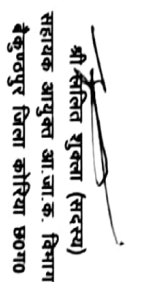 श्री ललित शुक्ला (सदस्य)
सहायक आयुक्त आ.जा.क. विभाग
बैकुण्ठपुर जिला कोरिया छ०ग०